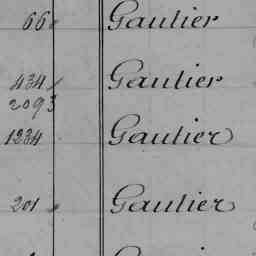 66 Gautier
434 Gautier
2093
1234 Gautier
201 Gautier